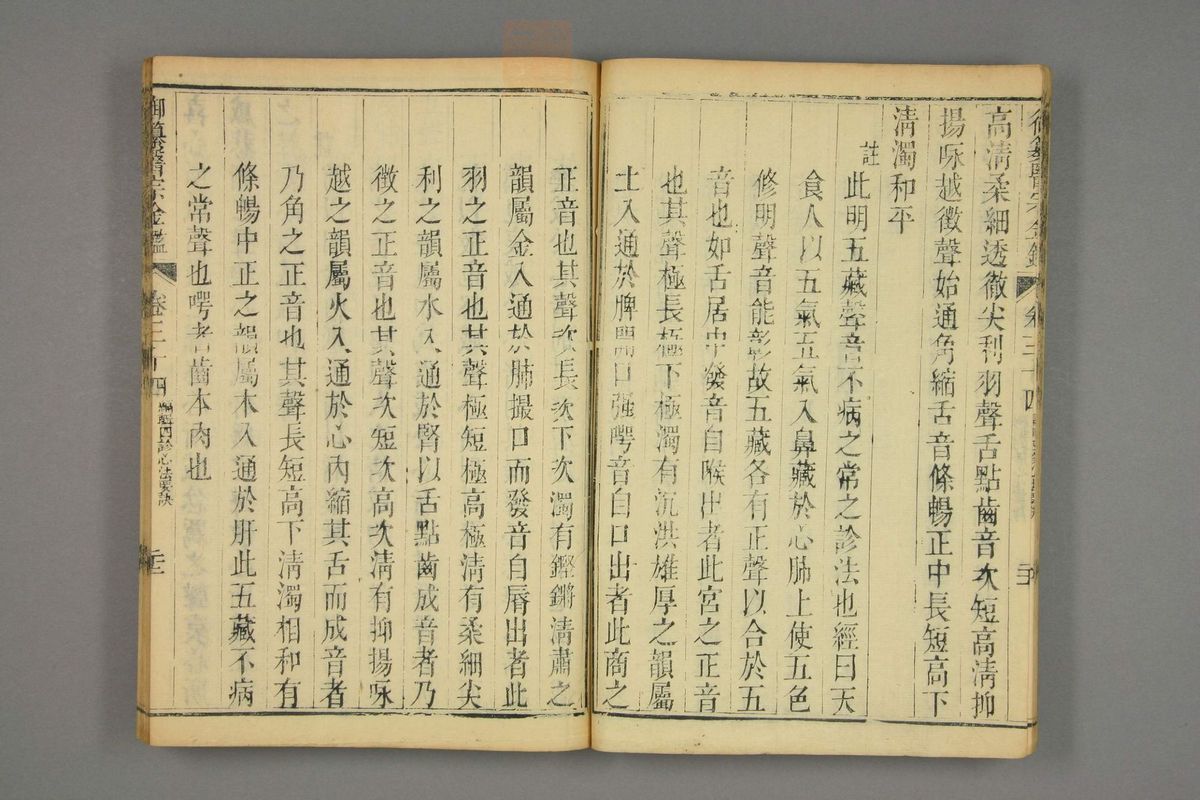 高清柔細透徹尖利羽聲舌點齒音次短高清抑
揚咏越徵聲始通角縮舌音條暢正中長短高下
清濁和平
註
此明五藏聲音不病之常之診法也經曰天
食人以五氣五氣入鼻藏於心肺上使五色
修明聲音能彰故五藏各有正聲以合於五
音也如舌居中發音自喉出者此宮之正音
也其聲極長極下極濁有沉洪雄厚之韻屬
土入通於脾開口强嘢音自口出者此商之
正音也其聲次長次下次濁有鏗鏘清肅之
韻屬金入通於肺撮口而發音自唇出者此
羽之正音也其聲極短極高極清有柔細尖
利之韻屬水入通於腎以舌點齒成音者乃
徵之正音也其聲次短次高次清有抑揚咏
越之韻屬火入通於心內縮其舌而成音者
乃角之正音也其聲長短高下清濁相和有
條暢中正之韻屬木入通於肝此五藏不病
之常聲也嘢者齒本肉也
御纂醫宗金鑑
卷三十四
編輯四診心法要訣